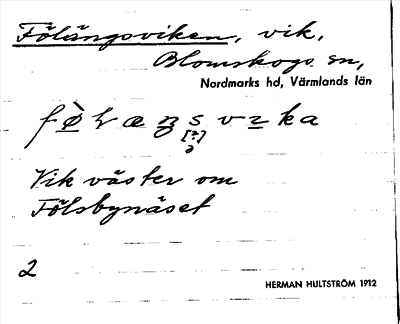 Fölängsviken, vik,
Blomskogs sn,
Nordmarks hd, Värmlands län
[?]
Vik väster om
Fölsbynäset
2
HERMAN HULTSTRÖM 1912